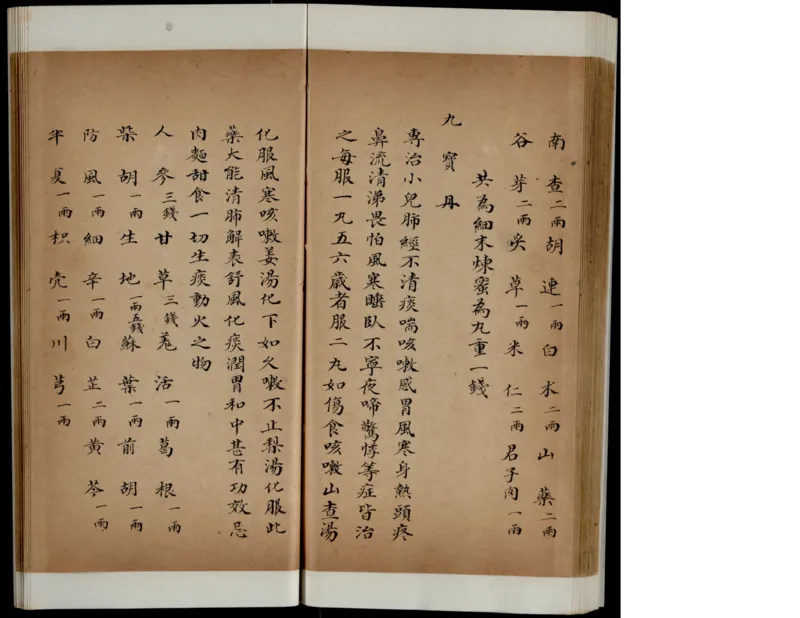 南查二兩胡連一兩白朮二兩山藥二兩
谷芽二兩炙草一兩米仁二兩君子肉一兩
共為細末煉蜜為丸重一錢
九寶丹
專治小兒肺經不清痰喘咳嗽感冒風寒身熱頭疼
鼻流清涕畏怕風寒瞌臥不寧夜啼驚悸等症皆治
之每服一丸五六歲者服二丸如傷食咳嗽山查湯
化服風寒咳嗽姜湯化下如久嗽不止梨湯化服此
藥大能清肺解表舒風化痰潤胃和中甚有功效忌
肉麵甜食一切生痰動火之物
人參三錢甘草三錢羗活一兩葛根一兩
柴胡一兩生地一兩五錢蘇葉一兩前胡一兩
防風一兩細辛一兩白芷二兩黃芩一兩
半夏一兩枳壳一兩川芎一兩